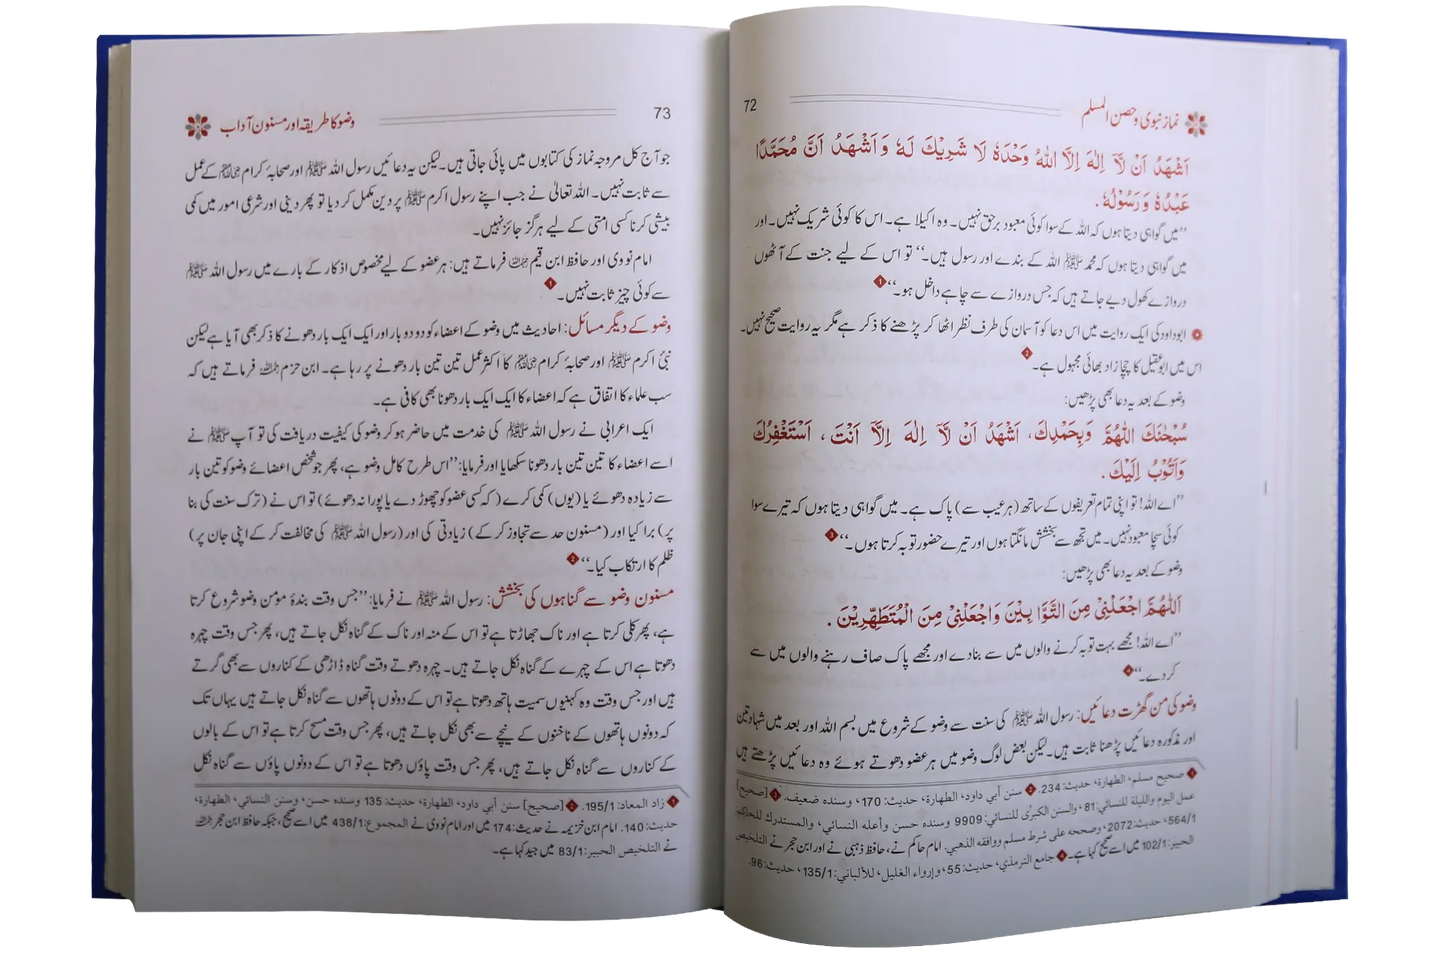 نماز نبوی و حصن المسلم 72
اَشْهَدُ اَنْ لَّآ اِلٰهَ اِلَّا اللهُ وَحْدَهٗ لَا شَرِيْكَ لَهٗ وَاَشْهَدُ اَنَّ مُحَمَّدًا
عَبْدُهٗ وَرَسُوْلُهٗ.
”میں گواہی دیتا ہوں کہ اللہ کے سوا کوئی معبود برحق نہیں۔ وہ اکیلا ہے۔ اس کا کوئی شریک نہیں۔ اور
میں گواہی دیتا ہوں کہ محمد ﷺ اللہ کے بندے اور رسول ہیں۔“ تو اس کے لیے جنت کے آٹھوں
دروازے کھول دیے جاتے ہیں کہ جس دروازے سے چاہے داخل ہو۔“ ۱
ابوداود کی ایک روایت میں اس دعا کو آسمان کی طرف نظر اٹھا کر پڑھنے کا ذکر ہے مگر یہ روایت صحیح نہیں۔
اس میں ابوعقیل کا چچا زاد بھائی مجہول ہے۔ ۲
وضو کے بعد یہ دعا بھی پڑھیں:
سُبْحٰنَكَ اللّٰهُمَّ وَبِحَمْدِكَ، اَشْهَدُ اَنْ لَّآ اِلٰهَ اِلَّآ اَنْتَ، اَسْتَغْفِرُكَ
وَاَتُوْبُ اِلَيْكَ.
”اے اللہ! تو اپنی تمام تعریفوں کے ساتھ (ہر عیب سے) پاک ہے۔ میں گواہی دیتا ہوں کہ تیرے سوا
کوئی سچا معبود نہیں۔ میں تجھ سے بخشش مانگتا ہوں اور تیرے حضور توبہ کرتا ہوں۔“ ۳
وضو کے بعد یہ دعا بھی پڑھیں:
اَللّٰهُمَّ اجْعَلْنِيْ مِنَ التَّوَّابِيْنَ وَاجْعَلْنِيْ مِنَ الْمُتَطَهِّرِيْنَ.
”اے اللہ! مجھے بہت توبہ کرنے والوں میں سے بنا دے اور مجھے پاک صاف رہنے والوں میں سے
کر دے۔“ ۴
وضو کی من گھڑت دعائیں: رسول اللہ ﷺ کی سنت سے وضو کے شروع میں بسم اللہ اور بعد میں شہادتین
اور مذکورہ دعائیں پڑھنا ثابت ہیں۔ لیکن بعض لوگ وضو میں ہر عضو دھوتے ہوئے وہ دعائیں پڑھتے ہیں
۱ صحيح مسلم، الطهارة، حديث: 234. ۲ سنن أبي داود، الطهارة، حديث: 170، وسنده ضعيف. ۳ [صحيح]
عمل اليوم والليلة للنسائي: 81، والسنن الكبرى للنسائي: 9909 وسنده حسن وأعله النسائي، والمستدرك للحاكم:
564/1، حديث: 2072، وصححه على شرط مسلم ووافقه الذهبي. امام حاکم نے، حافظ ذہبی نے اور ابن حجر نے التلخيص
الحبير: 102/1 میں اسے صحیح کہا ہے۔ ۴ جامع الترمذي، حديث: 55، وإرواء الغليل، للألباني: 135/1، حديث: 96.
73 وضو کا طریقہ اور مسنون آداب
جو آج کل مروجہ نماز کی کتابوں میں پائی جاتی ہیں۔ لیکن یہ دعائیں رسول اللہ ﷺ اور صحابۂ کرام رضی اللہ عنہم کے عمل
سے ثابت نہیں۔ اللہ تعالیٰ نے جب اپنے رسول اکرم ﷺ پر دین مکمل کر دیا تو پھر دینی اور شرعی امور میں کمی
بیشی کرنا کسی امتی کے لیے ہرگز جائز نہیں۔
امام نووی اور حافظ ابن قیم رحمہما اللہ فرماتے ہیں: ہر عضو کے لیے مخصوص اذکار کے بارے میں رسول اللہ ﷺ
سے کوئی چیز ثابت نہیں۔ ۱
وضو کے دیگر مسائل: احادیث میں وضو کے اعضاء کو دو دو بار اور ایک ایک بار دھونے کا ذکر بھی آیا ہے لیکن
نبی ٔ اکرم ﷺ اور صحابۂ کرام رضی اللہ عنہم کا اکثر عمل تین تین بار دھونے پر رہا ہے۔ ابن حزم رحمہ اللہ فرماتے ہیں کہ
سب علماء کا اتفاق ہے کہ اعضاء کا ایک ایک بار دھونا بھی کافی ہے۔
ایک اعرابی نے رسول اللہ ﷺ کی خدمت میں حاضر ہو کر وضو کی کیفیت دریافت کی تو آپ ﷺ نے
اسے اعضاء کا تین تین بار دھونا سکھایا اور فرمایا: ”اس طرح کامل وضو ہے، پھر جو شخص اعضائے وضو کو تین بار
سے زیادہ دھوئے یا (یوں) کمی کرے (کہ کسی عضو کو چھوڑ دے یا پورا نہ دھوئے) تو اس نے (ترک سنت کی بنا
پر) برا کیا اور (مسنون حد سے تجاوز کر کے) زیادتی کی اور (رسول اللہ ﷺ کی مخالفت کر کے اپنی جان پر)
ظلم کا ارتکاب کیا۔“ ۲
مسنون وضو سے گناہوں کی بخشش: رسول اللہ ﷺ نے فرمایا: ”جس وقت بندۂ مومن وضو شروع کرتا
ہے، پھر کلی کرتا ہے اور ناک جھاڑتا ہے تو اس کے منہ اور ناک کے گناہ نکل جاتے ہیں، پھر جس وقت چہرہ
دھوتا ہے اس کے چہرے کے گناہ نکل جاتے ہیں۔ چہرہ دھوتے وقت گناہ ڈاڑھی کے کناروں سے بھی گرتے
ہیں اور جس وقت وہ کہنیوں سمیت ہاتھ دھوتا ہے تو اس کے دونوں ہاتھوں سے گناہ نکل جاتے ہیں یہاں تک
کہ دونوں ہاتھوں کے ناخنوں کے نیچے سے بھی نکل جاتے ہیں، پھر جس وقت مسح کرتا ہے تو اس کے بالوں
کے کناروں سے گناہ نکل جاتے ہیں، پھر جس وقت پاؤں دھوتا ہے تو اس کے دونوں پاؤں سے گناہ نکل
۱ زاد المعاد: 195/1. ۲ [صحيح] سنن أبي داود، الطهارة، حديث: 135 وسنده حسن، وسنن النسائي، الطهارة،
حديث: 140. امام ابن خزیمہ نے حدیث: 174 میں اور امام نووی نے المجموع: 438/1 میں اسے صحیح، جبکہ حافظ ابن حجر رحمہ اللہ
نے التلخيص الحبير: 83/1 میں جید کہا ہے۔